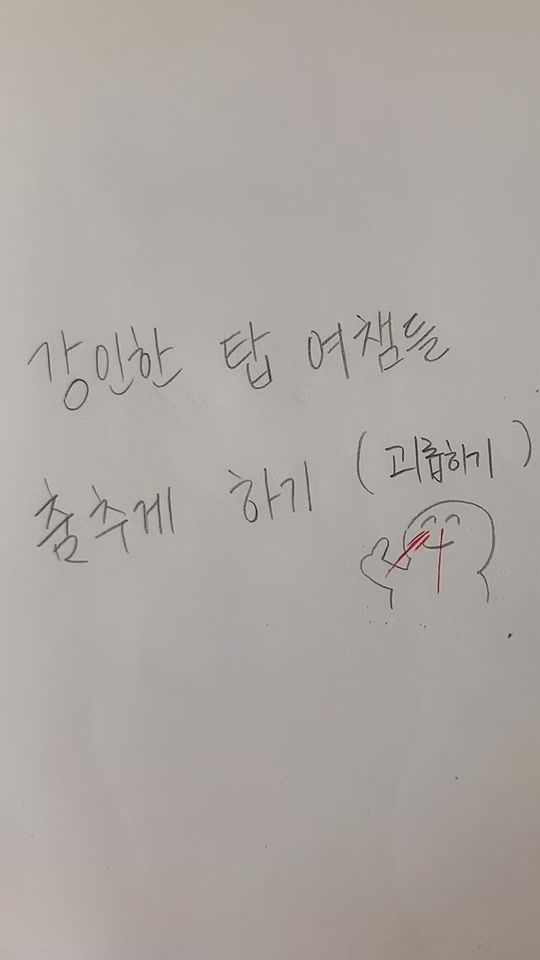 강인한 탑 여챔들
춤추게 하기 (괴롭하기)